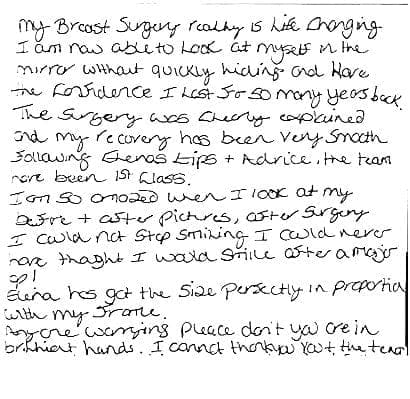 My Breast Surgery really is Life Changing
I am now able to Look at myself in the
mirror without quickly hiding and Have
the Confidence I Lost for so many years back.
The Surgery was Clearly explained
and my recovery has been very smooth
following Elenas tips + Advice, the team
have been 1st Class.
I am so amazed when I look at my
before + after pictures, after Surgery
I could not stop smiling I could never
have thought I would smile after a major
op!
Elena has got the size perfectly in proportion
with my frame.
Anyone worrying Please don't you are in
brilliant hands. I cannot thankyou You + the team